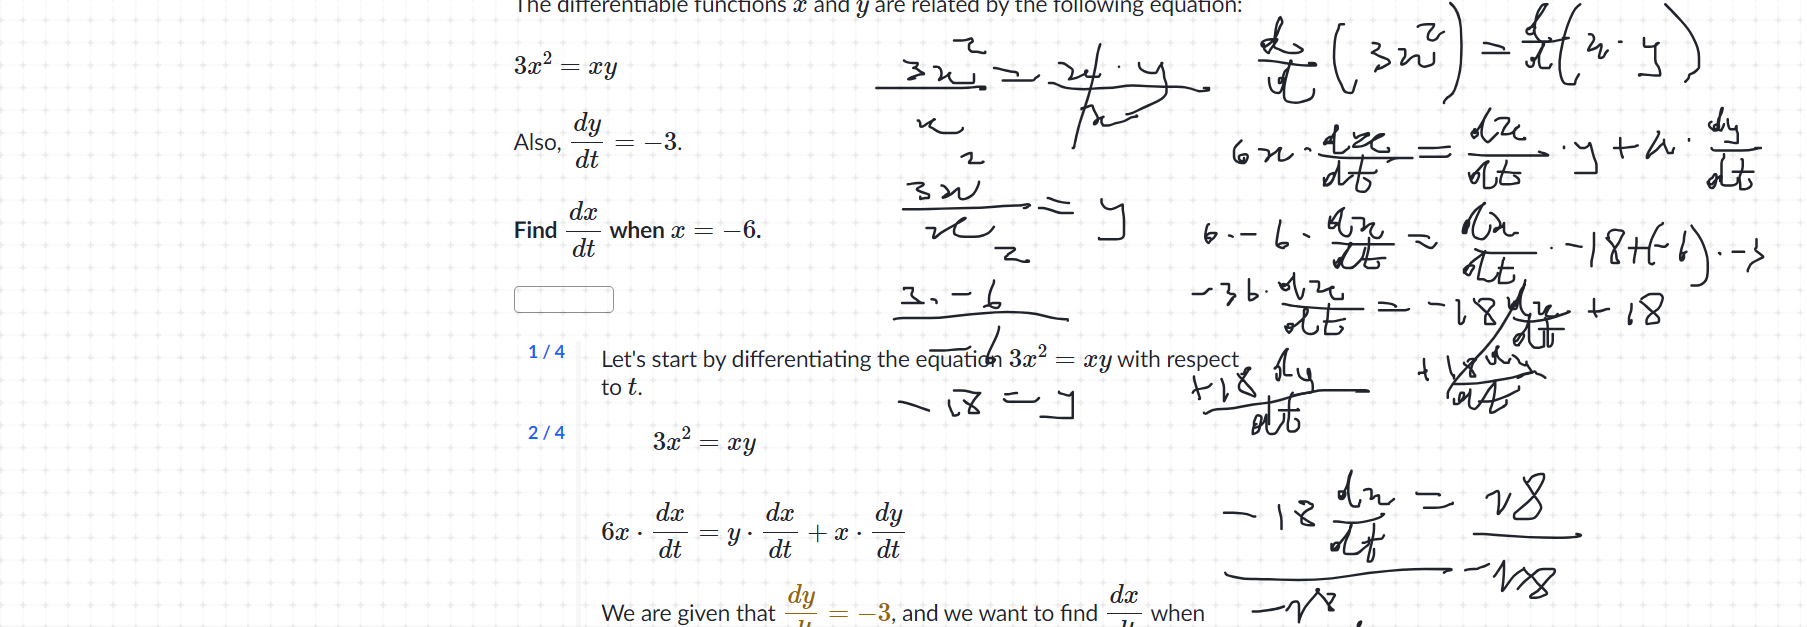 The differentiable functions x and y are related by the following equation:
3x² = xy
Also, dy/dt = −3.
Find dx/dt when x = −6.
1 / 4 Let's start by differentiating the equation 3x² = xy with respect
to t.
2 / 4 3x² = xy
6x · dx/dt = y · dx/dt + x · dy/dt
We are given that dy/dt = −3, and we want to find dx/dt when
3x²/x = x · y/x
3x²/x = y
3 · −6²/−6
−18 = y
d/dt (3x²) = d/dt (x · y)
6x · dx/dt = dx/dt · y + x · dy/dt
6 · −6 · dx/dt = dx/dt · −18 + (−6) · −3
−36 · dx/dt = −18 dx/dt + 18
+18 dy/dt + 18 dx/dt
−18 dx/dt = 18
−18 −18